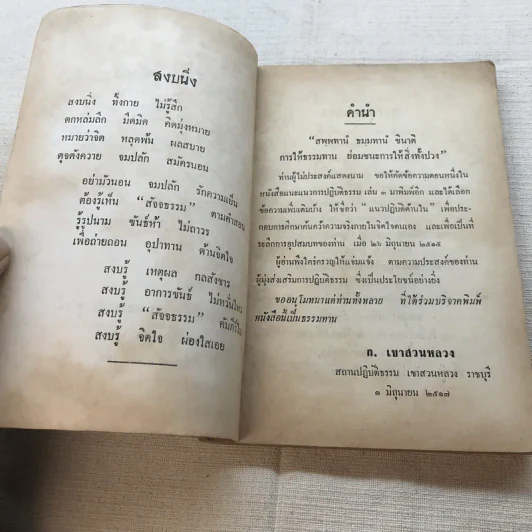 สงบนิ่ง
สงบนิ่ง ทั้งกาย ไม่รู้สึก
ตกหล่มลึก มืดมิด คิดมุ่งหมาย
หมายว่าจิต หลุดพ้น ผลสบาย
ดุจดังควาย จมปลัก สมัครนอน
อย่ามัวนอน จมปลัก รักความเย็น
ต้องรู้เห็น "สัจจธรรม" ตามคำสอน
รู้รูปนาม ขันธ์ห้า ไม่ถาวร
เพื่อถ่ายถอน อุปาทาน ด้านจิตใจ
สงบรู้ เหตุผล กลสังขาร
สงบรู้ อาการขันธ์ ไม่หวั่นไหว
สงบรู้ "สัจจธรรม"
สงบรู้ จิตใจ ผ่องใสเอย
คำนำ
"สพฺพทานํ ธมฺมทานํ ชินาติ
การให้ธรรมทาน ย่อมชนะการให้สิ่งทั้งปวง"
ท่านผู้ไม่ประสงค์แสดงนาม ขอให้คัดข้อความตอนหนึ่งใน
หนังสือแนะแนวการปฏิบัติธรรม เล่ม ๑ มาพิมพ์อีก และได้เลือก
ข้อความเพิ่มเติมบ้าง ให้ชื่อว่า "แนวปฏิบัติด้านใน" เพื่อประ-
กอบการศึกษาค้นคว้าความจริงภายในจิตใจตนเอง และเพื่อเป็นที่
ระลึกการอุปสมบทของท่าน เมื่อ ๒๖ มิถุนายน ๒๕๑๕
ผู้อ่านพึงใคร่ครวญให้แจ่มแจ้ง ตามความประสงค์ของท่าน
ผู้มุ่งส่งเสริมการปฏิบัติธรรม ซึ่งเป็นประโยชน์อย่างยิ่ง
ขออนุโมทนาแด่ท่านทั้งหลาย ที่ได้ร่วมบริจาคพิมพ์
หนังสือนี้เป็นธรรมทาน
ก. เขาสวนหลวง
สถานปฏิบัติธรรม เขาสวนหลวง ราชบุรี
๑ มิถุนายน ๒๕๑๗